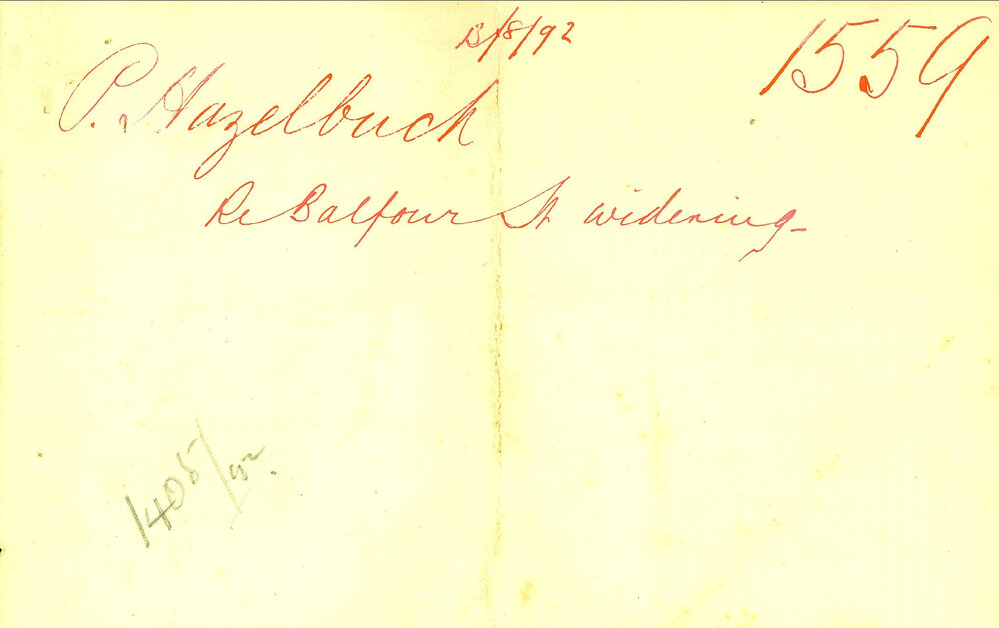 13/8/92
1559
P. Hazelbuck
Re Balfour St widening
1405/92.